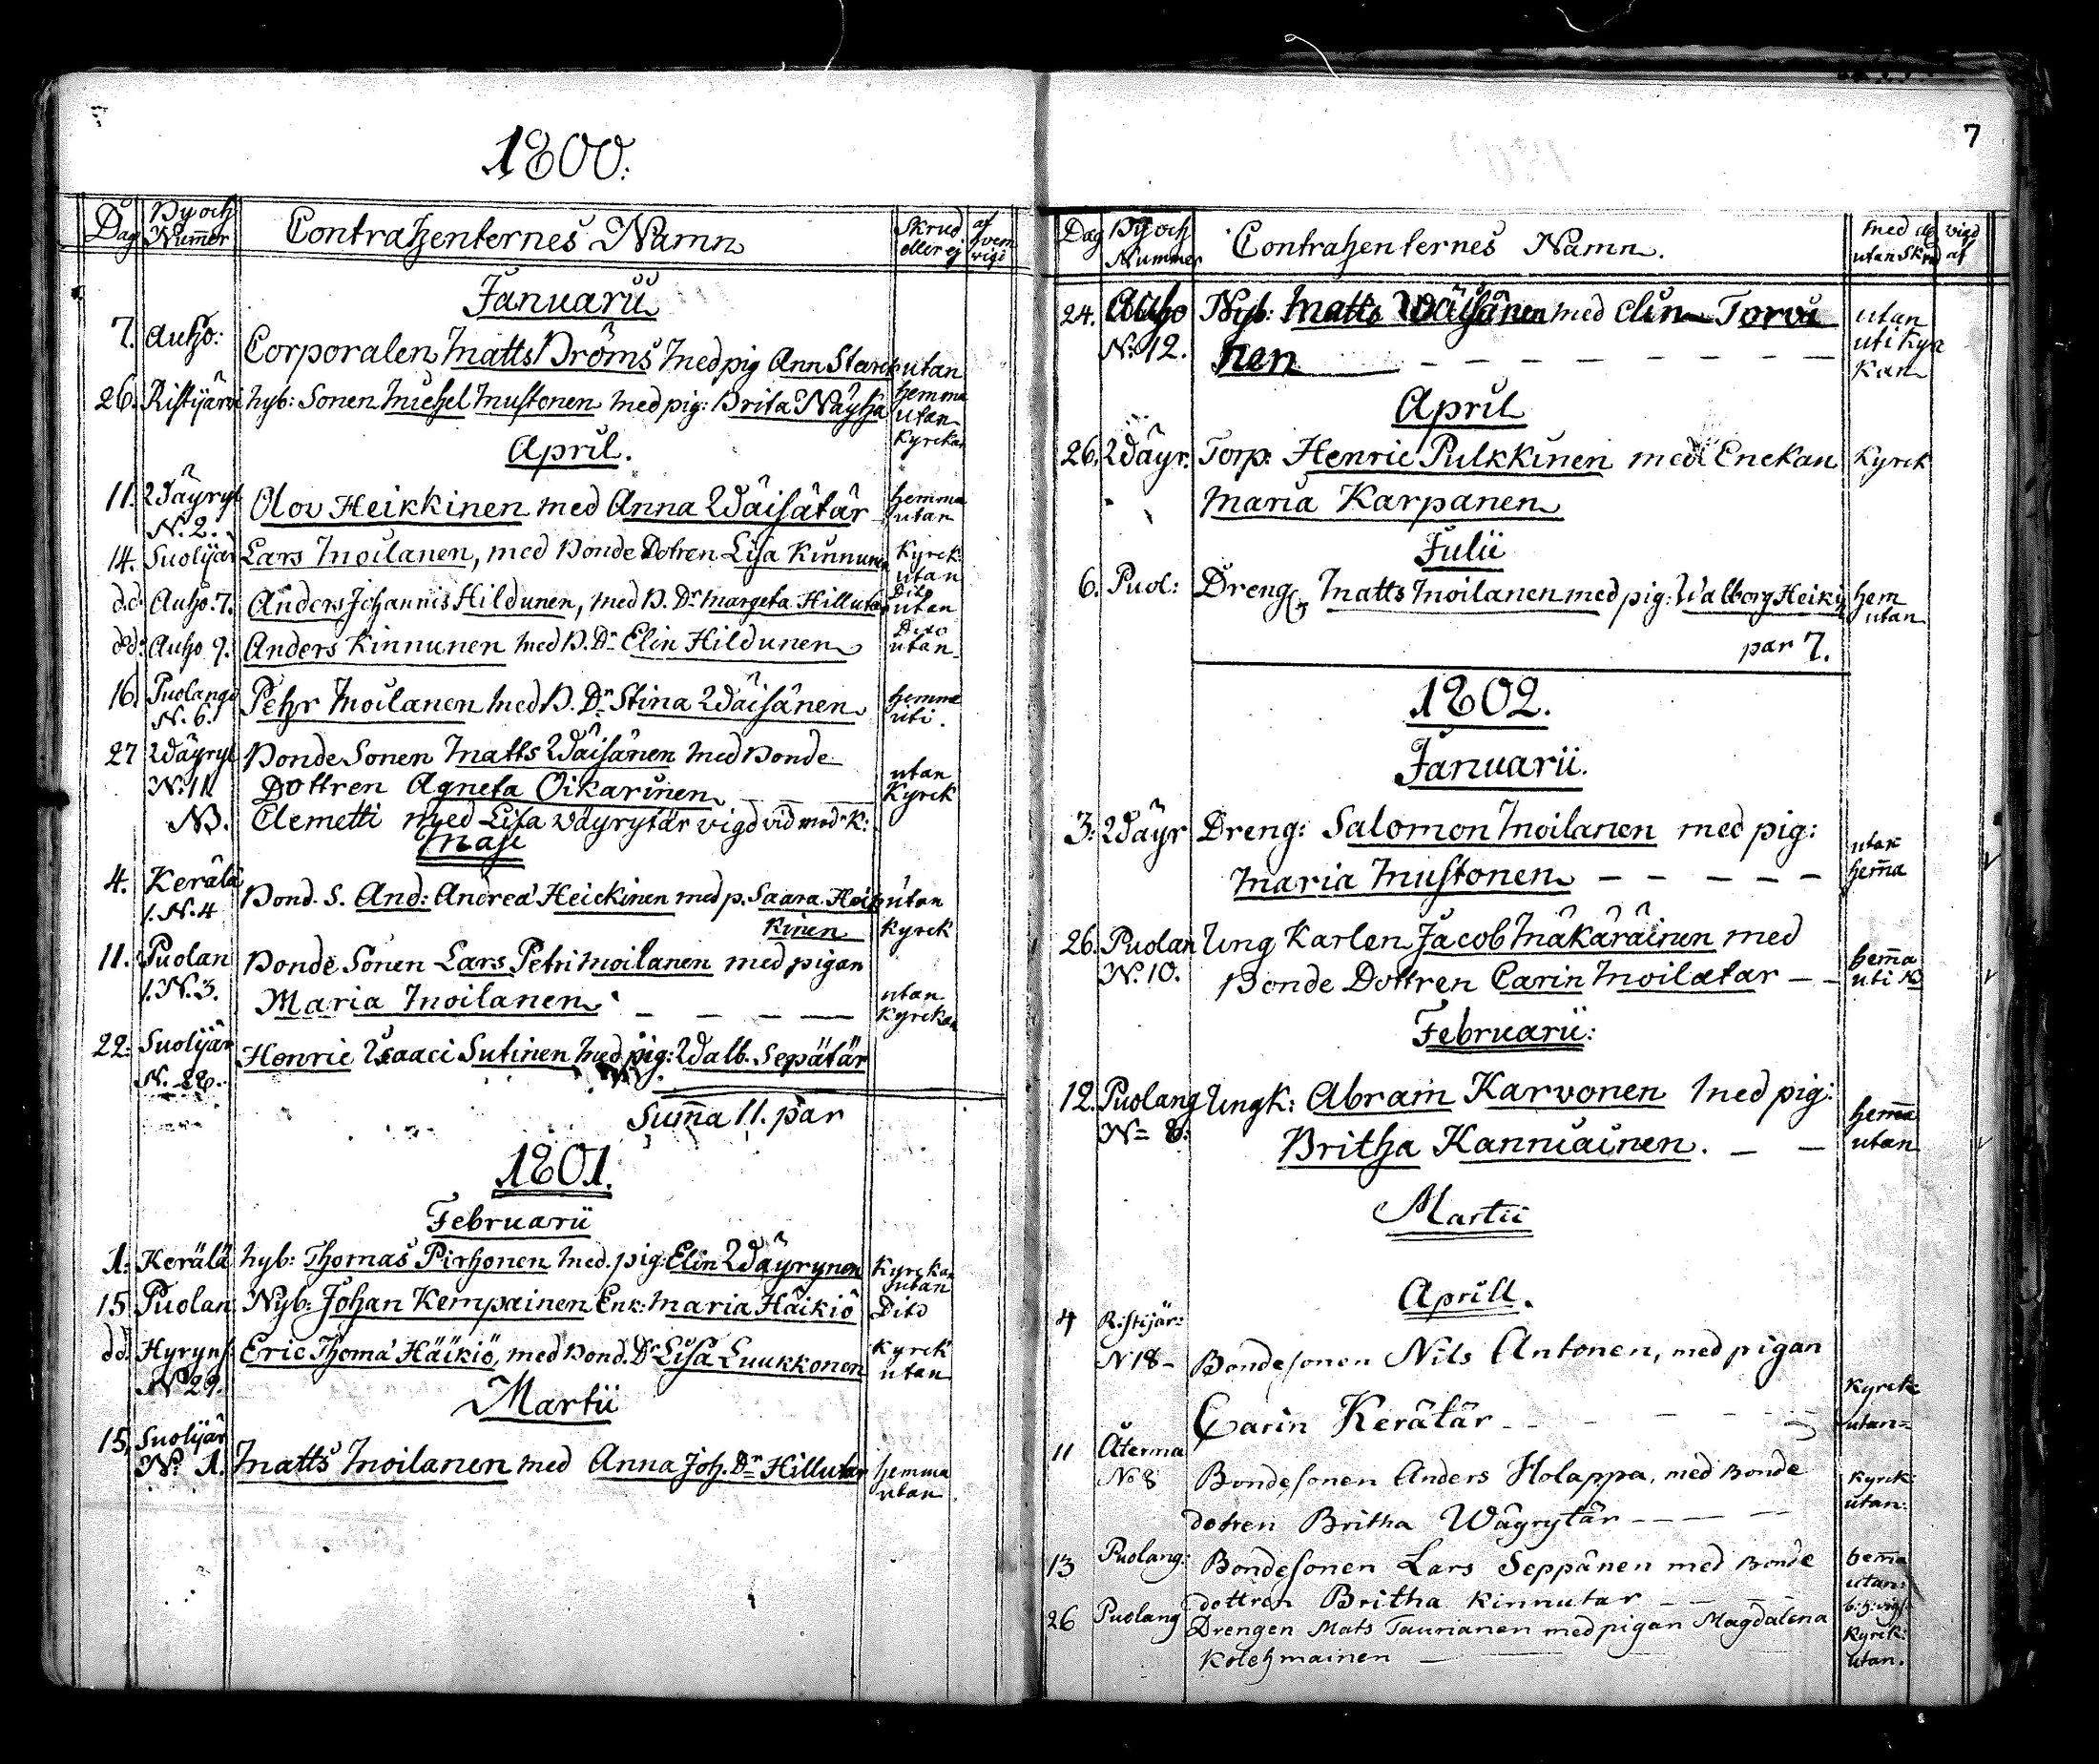 1800.
Dag By och Nummer Contrahenternes Namn Skrud eller ej af hvem vigd
Januarii
7. Auho: Corporalen Matts Bröms med pig Ann Starck utan
hemma
26. Ristijärvi hyb: Sonen Michel Mustonen med pig: Brita Näyhä utan
Kyrckan
April.
11. Wäyryl N. 2. Olov Heikkinen med Anna Wäisätär hemma utan
14. Suolijär Lars Moilanen, med Bonde Dotren Lisa Kinnunen Kyrck: utan
d.d. Auho. 7. Anders Johannis Hildunen, med B. Dr Margeta Hillutar Dito utan
dd: Auho 9. Anders Kinnunen med B. Dr Elin Hildunen Dito utan
16. Puolango N. 6. Pehr Moilanen med B. Dr Stina Wäisänen hemma uti.
27 Wäyryl N: 11. Bonde Sonen Matts Wäisänen med Bonde
Dottren Agneta Oikarinen utan Kyrck
NB. Clemetti med Lisa Wäyrytär vigd vid mod. K:
Maji
4. Kerälä 1. N. 4 Bond. S. And: Andreæ Heickinen med p. Saara Heic utan
kinen Kyrck
11. Puolan 1. N. 3. Bonde Sonen Lars Petri Moilanen med pigan
Maria Moilanen utan Kyrckan
22. Suolijär N. 22. Henric Isaaci Sutinen med pig: Walb. Sepätär
Summa 11. par
1801.
Februarii
1. Kerälä hyb: Thomas Pirhonen med. pig: Elin Wäyrynen Kyrckan utan
15 Puolan Nyb: Johan Kempainen Enk: Maria Häikiö Dito
dd. Hyryns: No 29. Eric Thomæ Häikiö, med Bond. Dr Lisa Luukkonen Kyrck utan
Martii
15. Suolijär No 1. Matts Moilanen med Anna Joh. Dr Hillutar hemma utan
7
Dag By och Nummer Contrahenternes Namn. med el utan Skrud vigd af
24. Auho N: 12. Nyb: Matts Wäisänen med Elin Torvi utan
nen uti Kyrckan
April
26. Wäyr. Torp: Henric Pulkkinen med Enckan Kyrck
Maria Karpanen
Julii
6. Puol: Dreng Matts Moilanen med pig: Walborg Heiki hem utan
par 7.
1802.
Januarii.
3. Wäyr Dreng: Salomon Moilanen med pig:
Maria Mustonen utan hemma
26. Puolan N. 10. Ung Karlen Jacob Mäkäräinen med
Bonde Dottren Carin Moilatar hemma uti
Februarii:
12. Puolang N= 8: Ungk: Abram Karvonen med pig:
Britha Kanniainen. hemma utan
Martii
Aprill.
4 Ristijär: N 18 Bondesonen Nils Antonen, med pigan
Carin Kerätär Kyrck utan
11 Aterma No 8 Bondesonen Anders Holappa, med Bonde
dotren Britha Wäyrytär Kyrck: utan:
13 Puolang: Bondesonen Lars Seppänen med Bonde
dottren Britha Kinnutar hemma utan:
26 Puolang Drengen Mats Taurianen med pigan Magdalena
Kolehmainen Kyrck: utan.